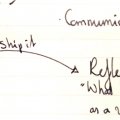 Communic
ship it
Refle
"What
as a